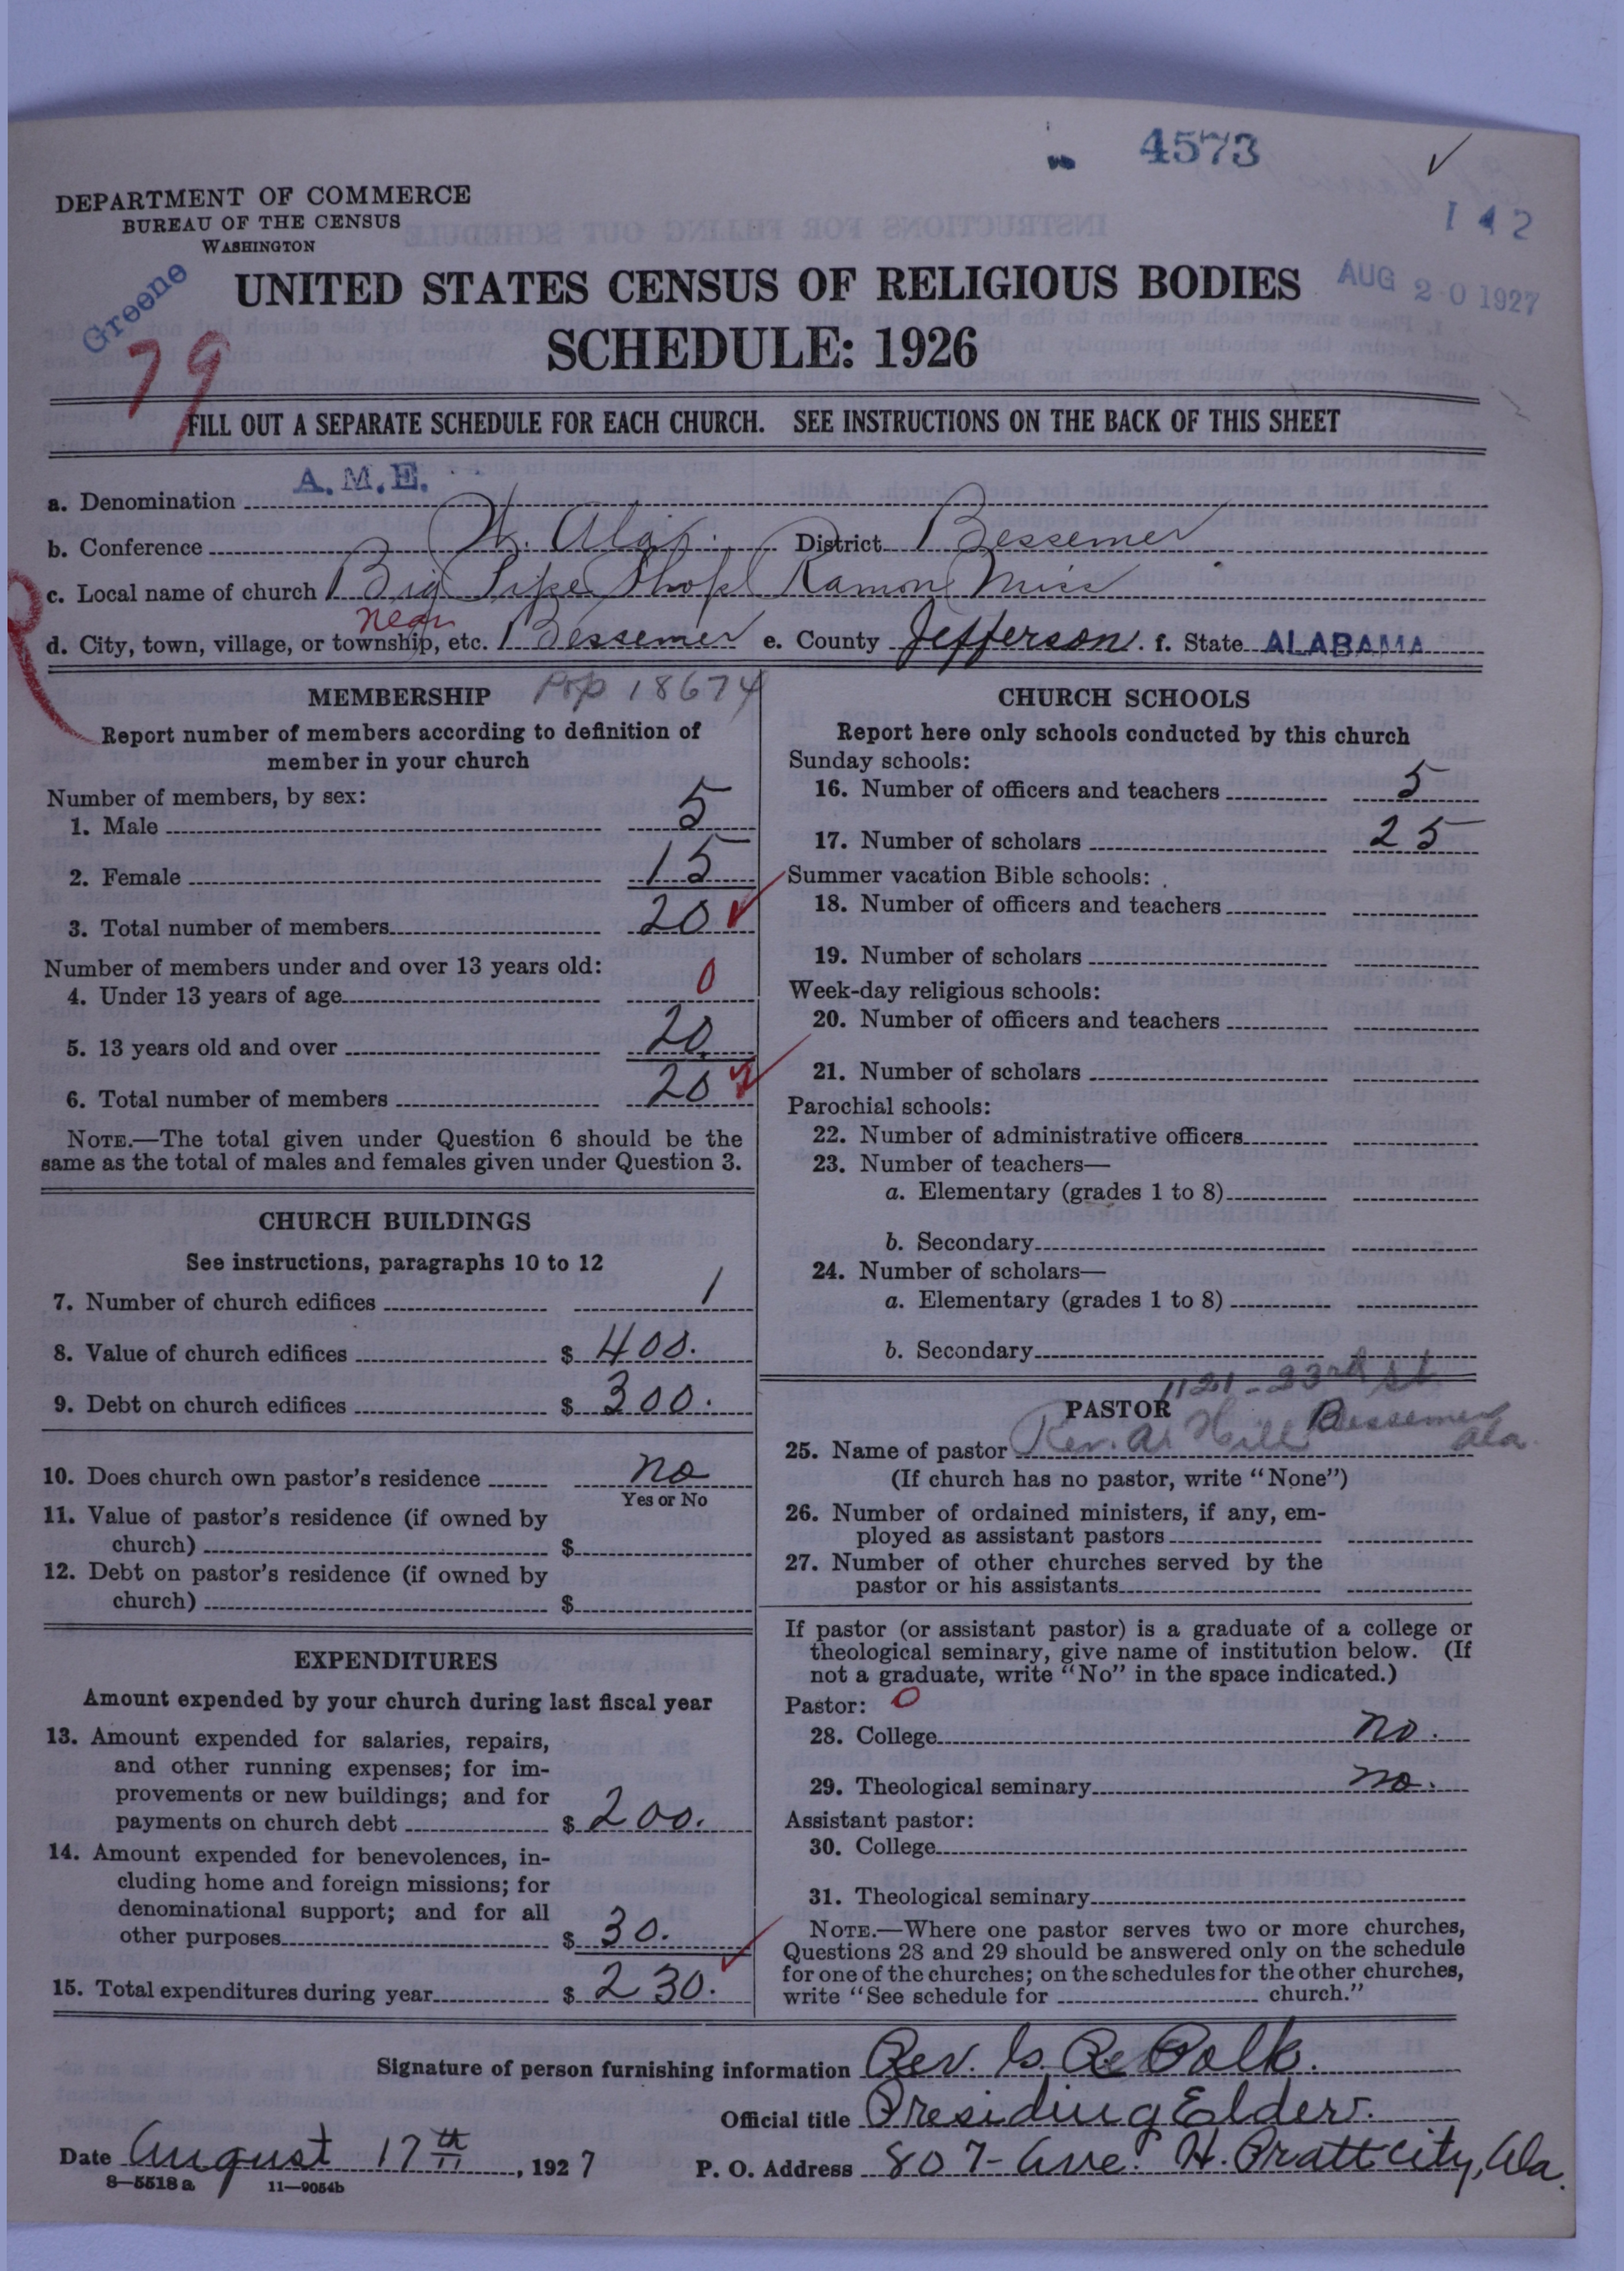 4573
142
DEPARTMENT OF COMMERCE
BUREAU OF THE CENSUS
WASHINGTON
AUG 20 1927
Greene
79
UNITED STATES CENSUS OF RELIGIOUS BODIES
SCHEDULE: 1926
FILL OUT A SEPARATE SCHEDULE FOR EACH CHURCH. SEE INSTRUCTIONS ON THE BACK OF THIS SHEET
a. Denomination A.M.E.
b. Conference N. Ala. District Bessemer
c. Local name of church Big Pipe Shop Ramon Miss
d. City, town, village, or township, etc. near Bessemer e. County Jefferson. f. State ALABAMA
MEMBERSHIP Pop 18674
Report number of members according to definition of
member in your church
Number of members, by sex:
1. Male 5
2. Female 15
3. Total number of members 20
Number of members under and over 13 years old:
4. Under 13 years of age 0
5. 13 years old and over 20
6. Total number of members 20
NOTE.—The total given under Question 6 should be the
same as the total of males and females given under Question 3.
CHURCH BUILDINGS
See instructions, paragraphs 10 to 12
7. Number of church edifices 1
8. Value of church edifices $ 400.
9. Debt on church edifices $ 300.
10. Does church own pastor's residence no
Yes or No
11. Value of pastor's residence (if owned by
church) $
12. Debt on pastor's residence (if owned by
church) $
EXPENDITURES
Amount expended by your church during last fiscal year
13. Amount expended for salaries, repairs,
and other running expenses; for im-
provements or new buildings; and for
payments on church debt $ 200.
14. Amount expended for benevolences, in-
cluding home and foreign missions; for
denominational support; and for all
other purposes $ 30.
15. Total expenditures during year $ 230.
CHURCH SCHOOLS
Report here only schools conducted by this church
Sunday schools:
16. Number of officers and teachers 5
17. Number of scholars 25
Summer vacation Bible schools:
18. Number of officers and teachers
19. Number of scholars
Week-day religious schools:
20. Number of officers and teachers
21. Number of scholars
Parochial schools:
22. Number of administrative officers
23. Number of teachers—
a. Elementary (grades 1 to 8)
b. Secondary
24. Number of scholars—
a. Elementary (grades 1 to 8)
b. Secondary
1121-23rd st
PASTOR Bessemer
25. Name of pastor Rev. A. Hill Ala.
(If church has no pastor, write "None")
26. Number of ordained ministers, if any, em-
ployed as assistant pastors
27. Number of other churches served by the
pastor or his assistants
If pastor (or assistant pastor) is a graduate of a college or
theological seminary, give name of institution below. (If
not a graduate, write "No" in the space indicated.)
Pastor: 0
28. College no.
29. Theological seminary no.
Assistant pastor:
30. College
31. Theological seminary
NOTE.—Where one pastor serves two or more churches,
Questions 28 and 29 should be answered only on the schedule
for one of the churches; on the schedules for the other churches,
write "See schedule for church."
Signature of person furnishing information Rev. Polk.
Official title Presiding Elder.
Date August 17th, 1927 P. O. Address 807-Ave. H. Pratt City, Ala.
8—5518a 11—9054b